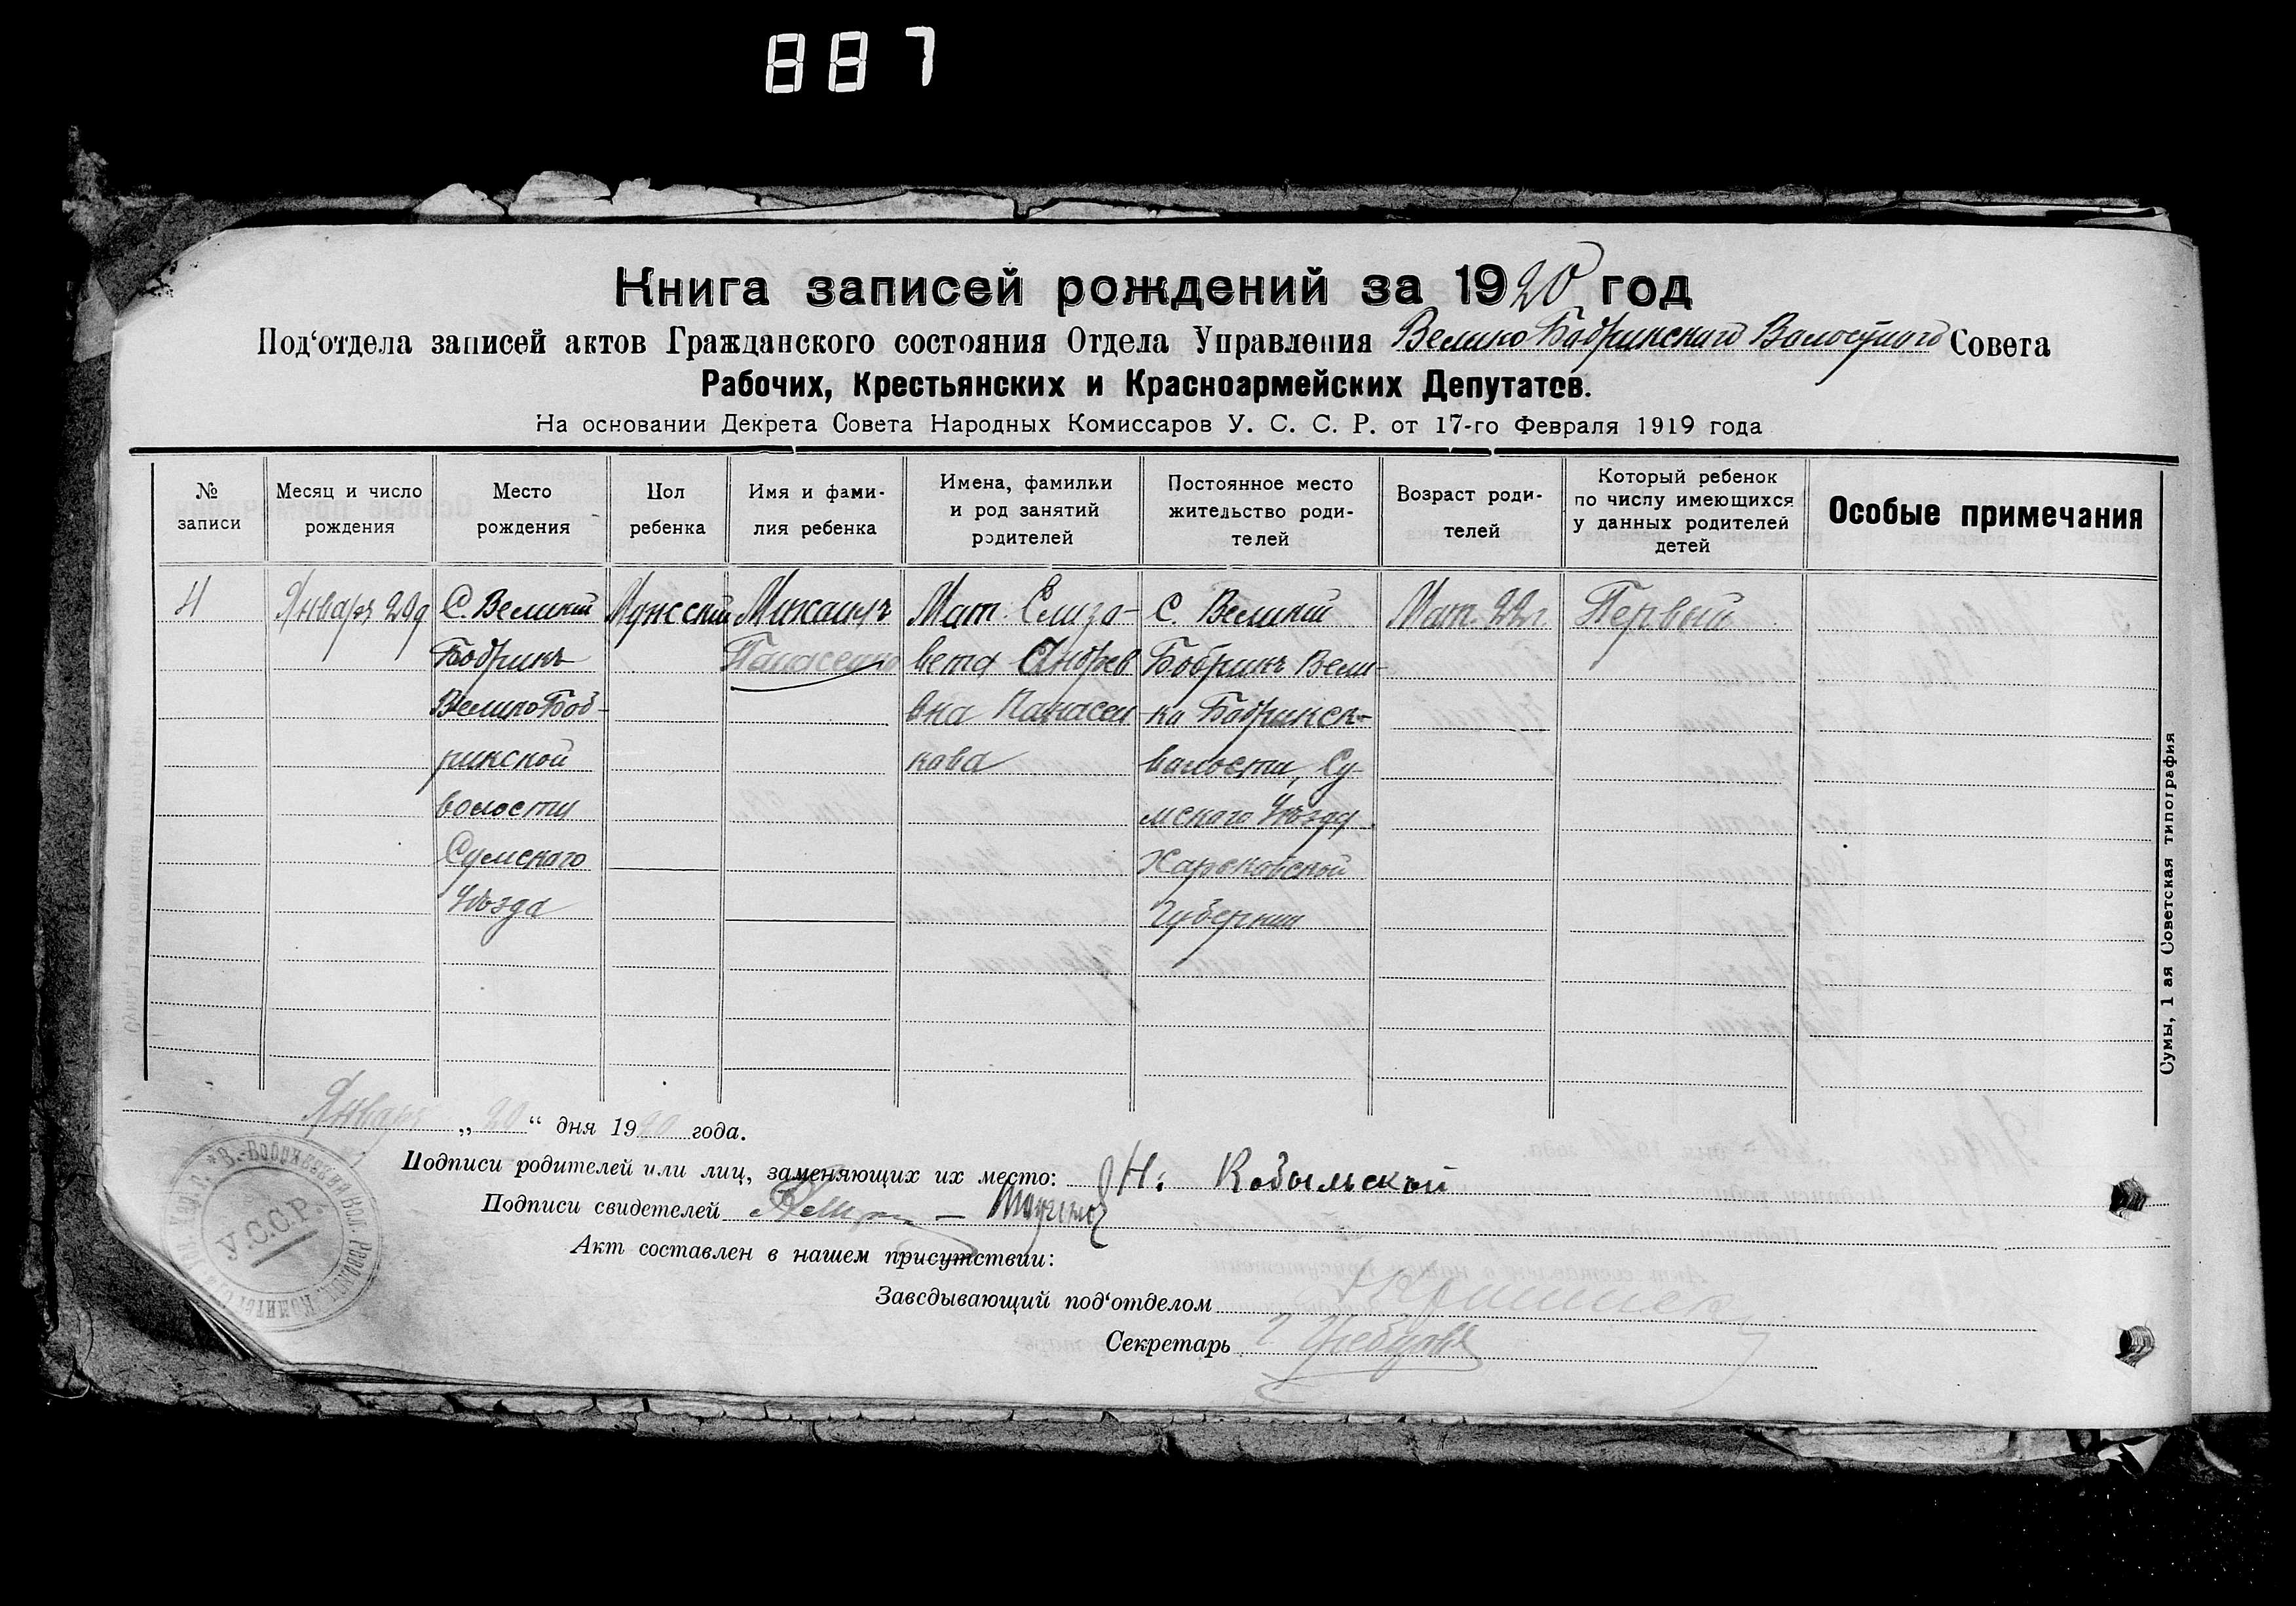 887
Книга записей рождений за 1920 год
Под‘отдела записей актов Гражданского состояния Отдела Управления Велико Бобринского Волостного Совета
Рабочих, Крестьянских и Красноармейских Депутатов.
На основании Декрета Совета Народных Комиссаров У. С. С. Р. от 17-го Февраля 1919 года
№ записи
Месяц и число рождения
Место рождения
Пол ребенка
Имя и фамилия ребенка
Имена, фамилии и род занятий родителей
Постоянное место жительство родителей
Возраст родителей
Который ребенок по числу имеющихся у данных родителей детей
Особые примечания
4
Январь
С. Великий
Бобрикъ
Велико Боб-
ринской
волости
Сумского
Уѣзда
Мужской
Михаилъ
Панасенко
Мат. Елиза-
вета Андрев
вна Панасен
кова
С. Великий
Бобрикъ Вели-
ко Бобринск-
волости, Су-
мского Уѣзда
Харьковской
Губернии
Мат. 22 г.
Первый
Январь „20“ дня 1920 года.
Подписи родителей или лиц, заменяющих их место: Н. Кобыльской
Подписи свидетелей
Акт составлен в нашем присутствии:
Заведывающий под‘отделом
Секретарь
У.С.С.Р.
Сумы, 1 ая Советская типография